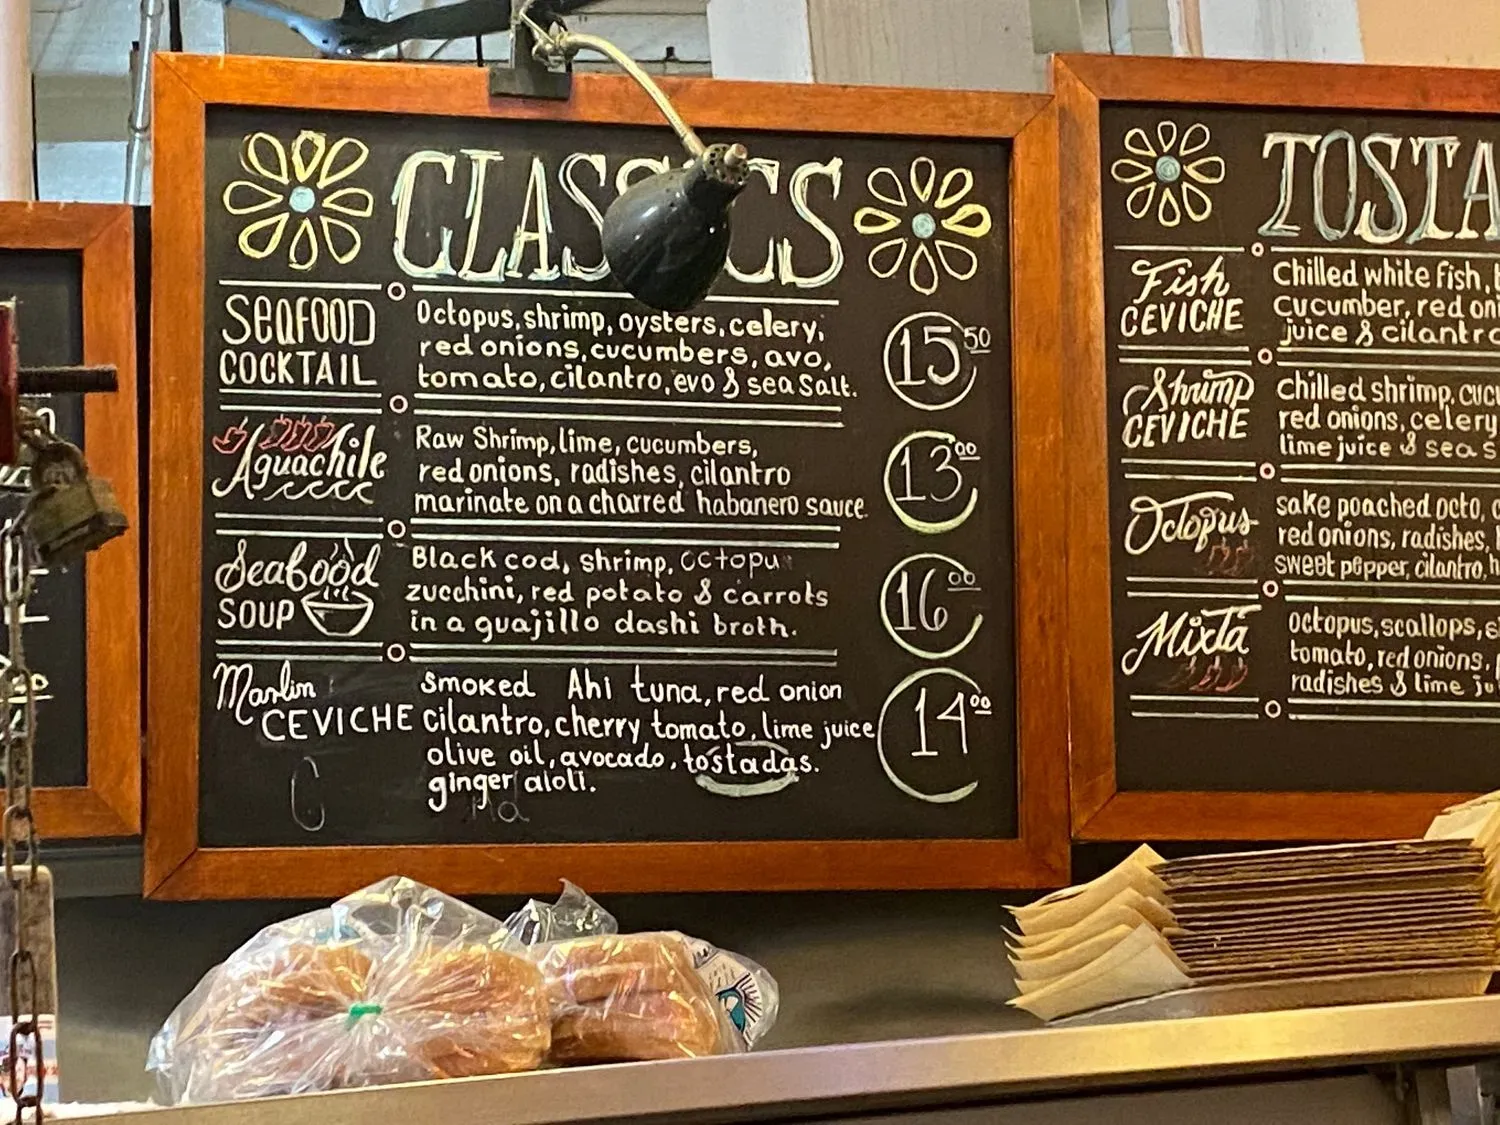 CLASSICS
SEAFOOD
COCKTAIL
Octopus, shrimp, oysters, celery,
red onions, cucumbers, avo,
tomato, cilantro, evo & sea salt.
15 50
Aguachile
Raw Shrimp, lime, cucumbers,
red onions, radishes, cilantro
marinate on a charred habanero sauce
13 00
Seafood
SOUP
Black cod, shrimp, octopu
zucchini, red potato & carrots
in a guajillo dashi broth.
16 00
Marlin
CEVICHE
smoked Ahi tuna, red onion
cilantro, cherry tomato, lime juice
olive oil, avocado, tostadas.
ginger aioli.
14 00
TOSTA
Fish
CEVICHE
Chilled white fish,
cucumber, red oni
juice & cilantro
Shrimp
CEVICHE
Chilled shrimp, cuc
red onions, celery
lime juice & sea s
Octopus
sake poached octo,
red onions, radishes,
sweet pepper, cilantro,
Mixta
octopus, scallops, s
tomato, red onions,
radishes & lime ju